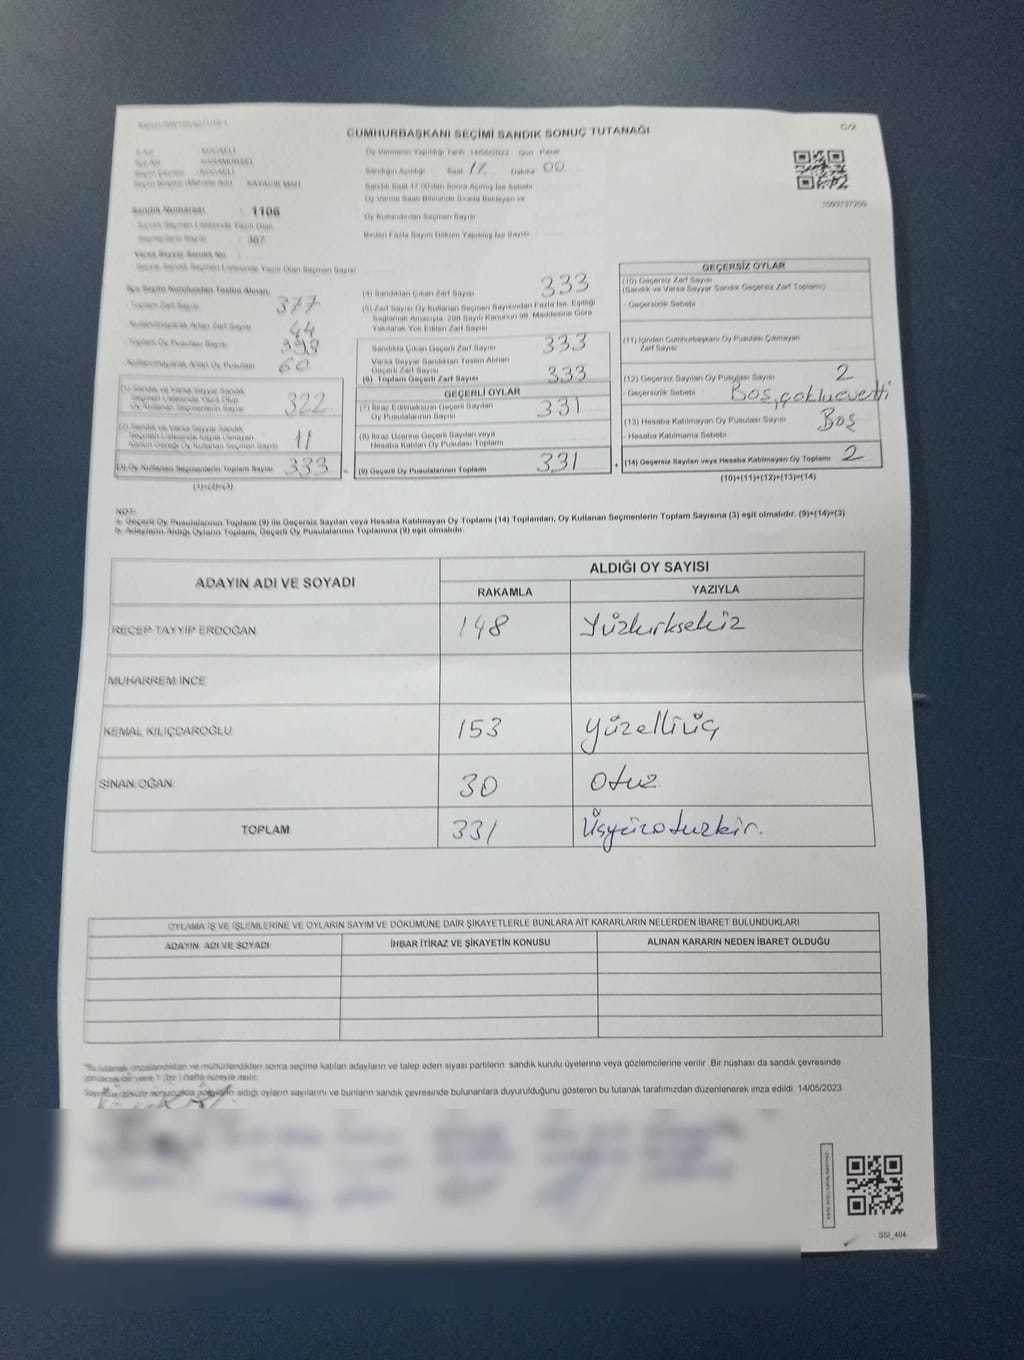 CUMHURBAŞKANI SEÇİMİ SANDIK SONUÇ TUTANAĞI
C/2
KOCAELİ
KARAMÜRSEL
KOCAELİ
KAYACIK MAH.
Oy Vermenin Yapıldığı Tarih 14/05/2023 Gün Pazar
Sandığın Açıldığı Saat 17 Dakika 00
Sandık Saat 17.00'den Sonra Açılmış İse Sebebi
Oy Verme Saati Bitiminde Sırada Bekleyen ve
Oy Kullandırılan Seçmen Sayısı
Birden Fazla Sayım Döküm Yapılmış İse Sayısı
1093737209
Sandık Numarası : 1106
Sandık Seçmen Listesinde Yazılı Olan
Seçmenlerin Sayısı : 367
Varsa Seyyar Sandık No
Seyyar Sandık Seçmen Listesinde Yazılı Olan Seçmen Sayısı
İlçe Seçim Kurulundan Teslim Alınan;
Toplam Zarf Sayısı 377
Kullanılmayarak Artan Zarf Sayısı 44
Toplam Oy Pusulası Sayısı 393
Kullanılmayarak Artan Oy Pusulası 60
(1) Sandık ve Varsa Seyyar Sandık
Seçmen Listesinde Yazılı Olup
Oy Kullanan Seçmenlerin Sayısı 322
(2) Sandık ve Varsa Seyyar Sandık
Seçmen Listesinde Kayıtlı Olmayan
Kanun Gereği Oy Kullanan Seçmen Sayısı 11
(3) Oy Kullanan Seçmenlerin Toplam Sayısı 333
(1)+(2)=(3)
(4) Sandıktan Çıkan Zarf Sayısı 333
(5) Zarf Sayısı Oy Kullanan Seçmen Sayısından Fazla İse, Eşitliği
Sağlamak Amacıyla, 298 Sayılı Kanunun 98. Maddesine Göre
Yakılarak Yok Edilen Zarf Sayısı
Sandıkta Çıkan Geçerli Zarf Sayısı 333
Varsa Seyyar Sandıktan Teslim Alınan
Geçerli Zarf Sayısı
(6) Toplam Geçerli Zarf Sayısı 333
GEÇERLİ OYLAR
(7) İtiraz Edilmeksizin Geçerli Sayılan
Oy Pusulalarının Sayısı 331
(8) İtiraz Üzerine Geçerli Sayılan veya
Hesaba Katılan Oy Pusulası Toplamı
= (9) Geçerli Oy Pusulalarının Toplamı 331
GEÇERSİZ OYLAR
(10) Geçersiz Zarf Sayısı
(Sandık ve Varsa Seyyar Sandık Geçersiz Zarf Toplamı)
- Geçersizlik Sebebi
(11) İçinden Cumhurbaşkanı Oy Pusulası Çıkmayan
Zarf Sayısı
(12) Geçersiz Sayılan Oy Pusulası Sayısı 2
- Geçersizlik Sebebi Boş, çokluevetti
(13) Hesaba Katılmayan Oy Pusulası Sayısı Boş
- Hesaba Katılmama Sebebi
+ (14) Geçersiz Sayılan veya Hesaba Katılmayan Oy Toplamı 2
(10)+(11)+(12)+(13)=(14)
NOT:
a- Geçerli Oy Pusulalarının Toplamı (9) ile Geçersiz Sayılan veya Hesaba Katılmayan Oy Toplamı (14) Toplamları, Oy Kullanan Seçmenlerin Toplam Sayısına (3) eşit olmalıdır. (9)+(14)=(3)
b- Adayların Aldığı Oyların Toplamı, Geçerli Oy Pusulalarının Toplamına (9) eşit olmalıdır.
ADAYIN ADI VE SOYADI
ALDIĞI OY SAYISI
RAKAMLA YAZIYLA
RECEP TAYYİP ERDOĞAN 148 Yüzkırksekiz
MUHARREM İNCE
KEMAL KILIÇDAROĞLU 153 yüzelliüç
SİNAN OĞAN 30 Otuz
TOPLAM 331 Üçyüzotuzbir.
OYLAMA İŞ VE İŞLEMLERİNE VE OYLARIN SAYIM VE DÖKÜMÜNE DAİR ŞİKAYETLERLE BUNLARA AİT KARARLARIN NELERDEN İBARET BULUNDUKLARI
ADAYIN ADI VE SOYADI İHBAR İTİRAZ VE ŞİKAYETİN KONUSU ALINAN KARARIN NEDEN İBARET OLDUĞU
*Bu tutanak imzalandıktan ve mühürlendikten sonra seçime katılan adayların ve talep eden siyasi partilerin sandık kurulu üyelerine veya gözlemcilerine verilir. Bir nüshası da sandık çevresinde
bir yere 1 (bir) hafta süreyle asılır.
Sayım ve döküm sonucunda adayların aldığı oyların sayılarını ve bunların sandık çevresinde bulunanlara duyurulduğunu gösteren bu tutanak tarafımızdan düzenlenerek imza edildi. 14/05/2023
SSI_404